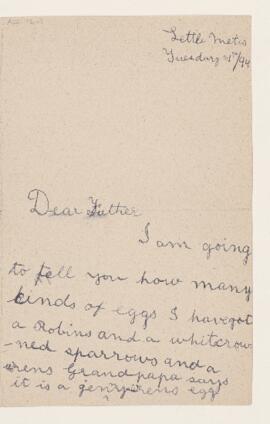 Little Metis
Tuesday 21st/94
Dear Father
I am going
to tell you how many
kinds of eggs I have got
a Robins and a whitcrow
-ned sparrows and a
wrens Grandpapa says
it is a jennywrens egg